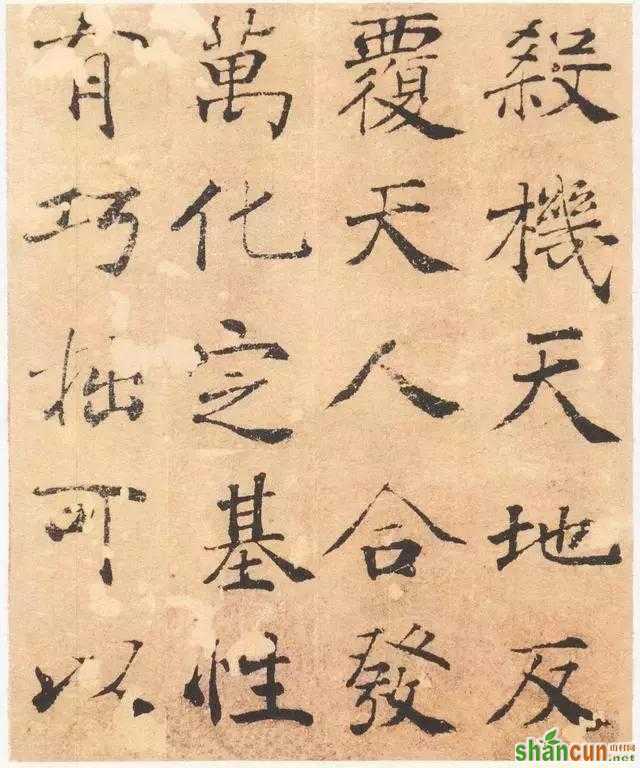 殺機天地反
覆天人合發
萬化㝎基性
有巧拙可以
shancun
山村网
.net